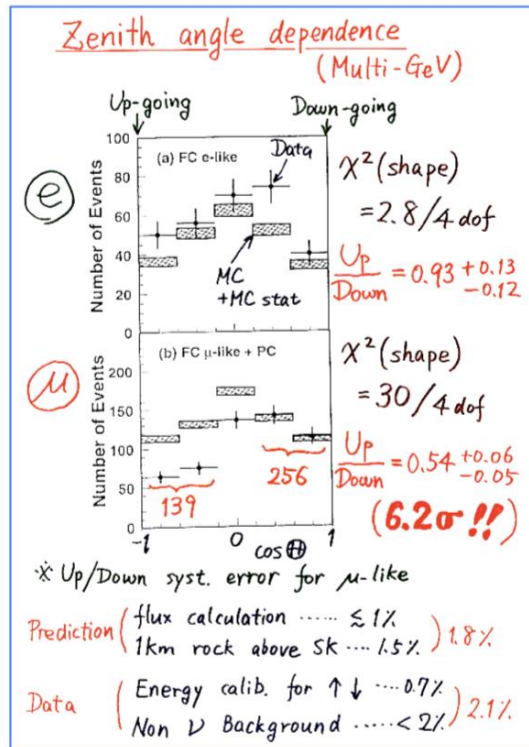 Zenith angle dependence
(Multi-GeV)
Up-going
Down-going
100
80
60
40
20
0
Number of Events
(a) FC e-like
Data
MC
+MC stat
e
χ² (shape)
= 2.8/4 dof
Up/Down = 0.93 +0.13 -0.12
200
150
100
50
0
Number of Events
(b) FC μ-like + PC
139
256
-1 0 1
cos Θ
μ
χ² (shape)
= 30/4 dof
Up/Down = 0.54 +0.06 -0.05
(6.2σ !!)
※ Up/Down syst. error for μ-like
Prediction ( flux calculation ...... ≲ 1%
1km rock above SK .... 1.5% ) 1.8%
Data ( Energy calib. for ↑ ↓ .... 0.7%
Non ν Background ...... < 2% ) 2.1%